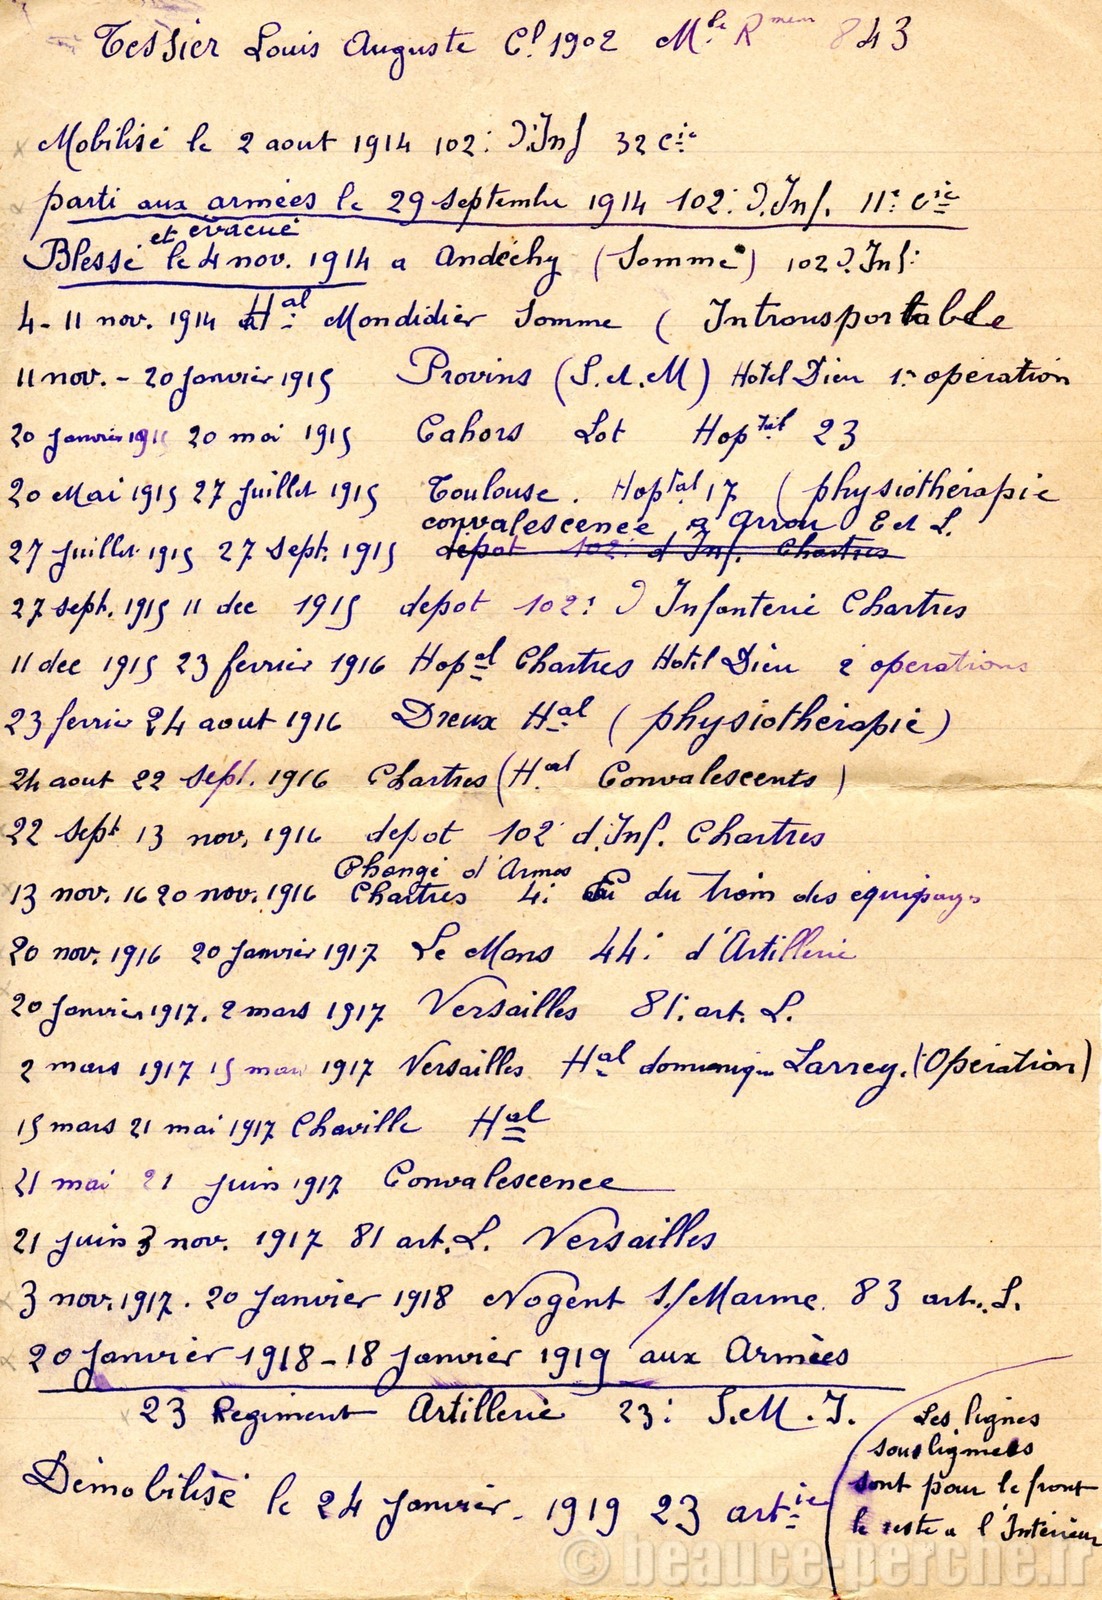 Tessier Louis Auguste Cl 1902 Mle Rmen 843
Mobilisé le 2 aout 1914 102: d'Inf 32 Cie
parti aux armées le 29 septembre 1914 102: d.Inf. 11: Cie
et évacué
Blessé le 4 nov. 1914 a Andéchy (Somme) 102 d.Inf:
4-11 nov. 1914 Hal Mondidier Somme ( Intransportable
11 nov. - 20 Janvier 1915 Provins (S.et.M) Hotel Dieu 1: opération
20 Janvier 1915 20 mai 1915 Cahors Lot Hoptal 23
20 Mai 1915 27 Juillet 1915 Toulouse. Hoptal 17 ( physiothérapie
convalescence a Arrou E et L.
27 Juillet 1915 27 Sept. 1915 dépot 102: d Inf. Chartres
27 sept. 1915 11 dec 1915 depot 102: d Infanterie Chartres
11 dec 1915 23 fevrier 1916 Hopal Chartres Hotel Dieu 2 operations
23 fevrier 24 aout 1916 Dreux Hal ( physiothérapie)
24 aout 22 sept. 1916 Chartres (Hal Convalescents)
22 sept 13 nov. 1916 depot 102 d.Inf. Chartres
Changé d'Armes
13 nov. 16 20 nov. 1916 Chartres 4: du train des équipages
20 nov. 1916 20 Janvier 1917 Le Mans 44: d'Artillerie
20 Janvier 1917. 2 mars 1917 Versailles 81: art. L.
2 mars 1917 15 mars 1917 Versailles Hal dominique Larrey. (Opération)
15 mars 21 mai 1917 Chaville Hal
21 mai 21 Juin 1917 Convalescence
21 Juin 3 nov. 1917 81 art. L. Versailles
3 nov. 1917. 20 Janvier 1918 Nogent S/Marne 83 art. L.
20 Janvier 1918-18 Janvier 1919 aux Armées
23 Regiment Artillerie 23: S.M.I.
Démobilisé le 24 Janvier. 1919 23 artie
Les lignes
souslignées
sont pour le front
le reste a l'Intérieur
© beauce-perche.fr